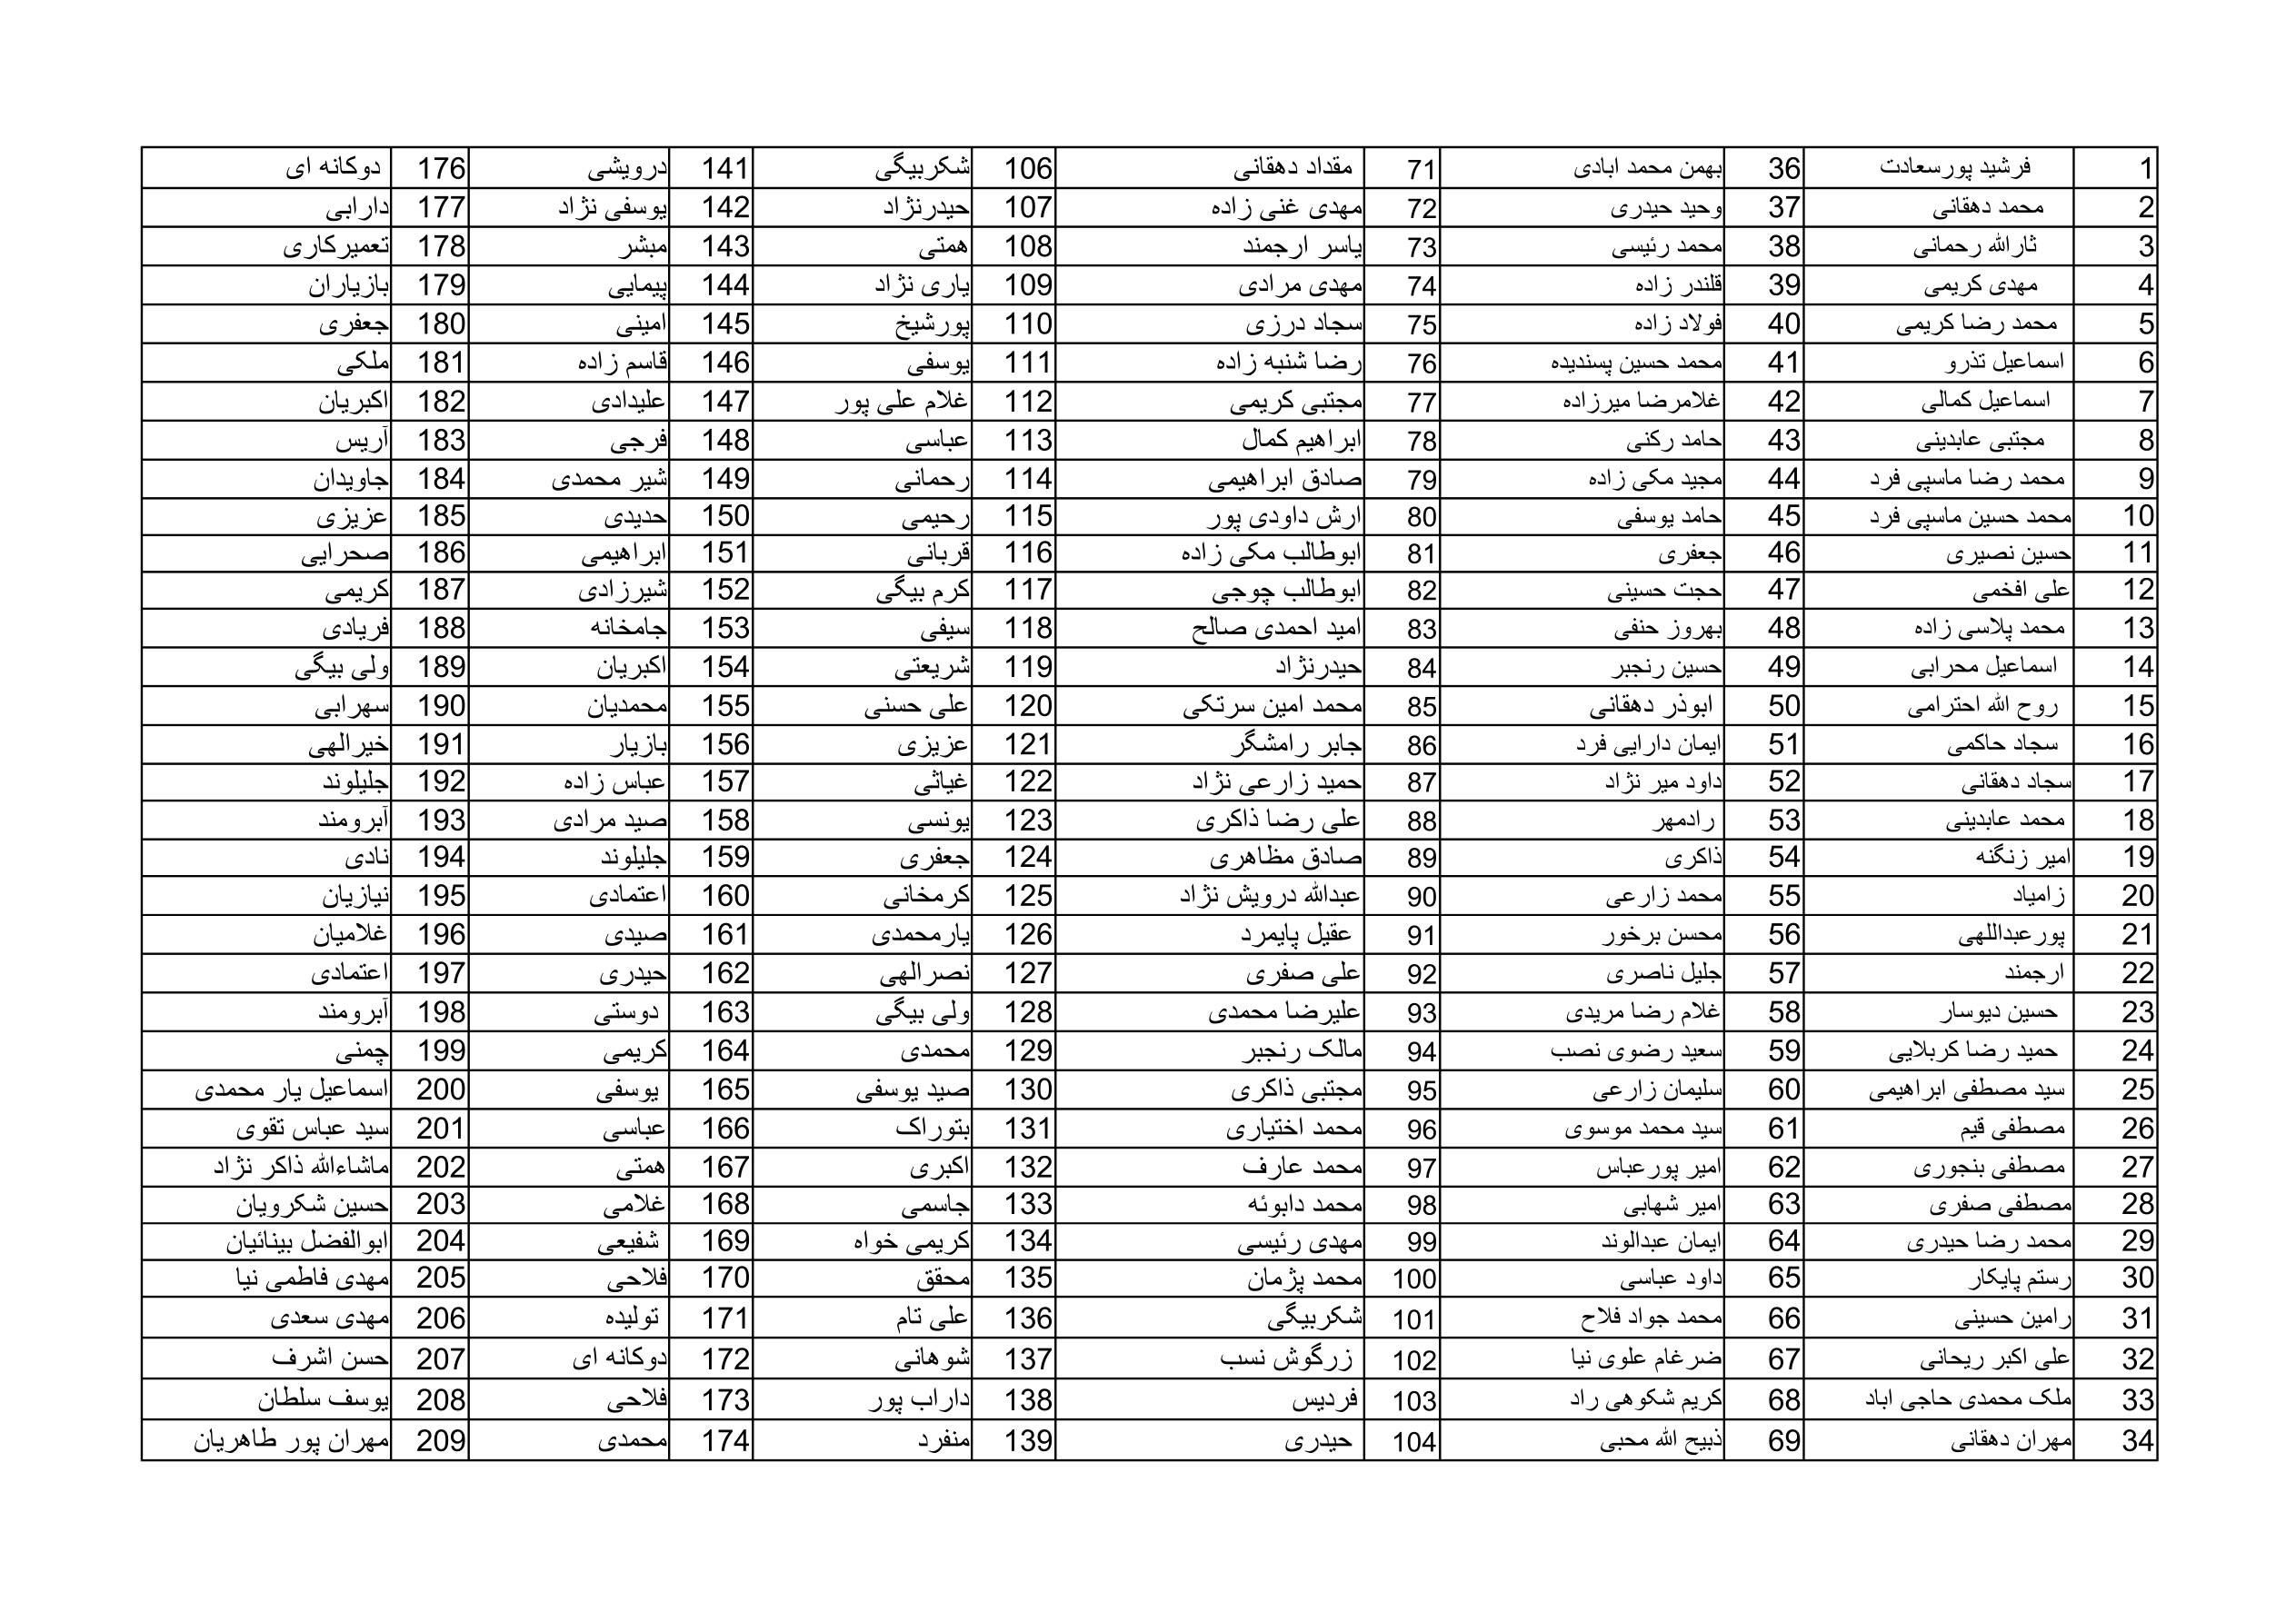 1 فرشید پورسعادت 36 بهمن محمد ابادی 71 مقداد دهقانی 106 شکربیگی 141 درویشی 176 دوکانه ای
2 محمد دهقانی 37 وحید حیدری 72 مهدی غنی زاده 107 حیدرنژاد 142 یوسفی نژاد 177 دارابی
3 ثارالله رحمانی 38 محمد رئیسی 73 یاسر ارجمند 108 همتی 143 مبشر 178 تعمیرکاری
4 مهدی کریمی 39 قلندر زاده 74 مهدی مرادی 109 یاری نژاد 144 پیمایی 179 بازیاران
5 محمد رضا کریمی 40 فولاد زاده 75 سجاد درزی 110 پورشیخ 145 امینی 180 جعفری
6 اسماعیل تذرو 41 محمد حسین پسندیده 76 رضا شنبه زاده 111 یوسفی 146 قاسم زاده 181 ملکی
7 اسماعیل کمالی 42 غلامرضا میرزاده 77 مجتبی کریمی 112 غلام علی پور 147 علیدادی 182 اکبریان
8 مجتبی عابدینی 43 حامد رکنی 78 ابراهیم کمال 113 عباسی 148 فرجی 183 آریس
9 محمد رضا ماسپی فرد 44 مجید مکی زاده 79 صادق ابراهیمی 114 رحمانی 149 شیر محمدی 184 جاویدان
10 محمد حسین ماسپی فرد 45 حامد یوسفی 80 ارش داودی پور 115 رحیمی 150 حدیدی 185 عزیزی
11 حسین نصیری 46 جعفری 81 ابوطالب مکی زاده 116 قربانی 151 ابراهیمی 186 صحرایی
12 علی افخمی 47 حجت حسینی 82 ابوطالب چوجی 117 کرم بیگی 152 شیرزادی 187 کریمی
13 محمد پلاسی زاده 48 بهروز حنفی 83 امید احمدی صالح 118 سیفی 153 جامخانه 188 فریادی
14 اسماعیل محرابی 49 حسین رنجبر 84 حیدرنژاد 119 شریعتی 154 اکبریان 189 ولی بیگی
15 روح الله احترامی 50 ابوذر دهقانی 85 محمد امین سرتکی 120 علی حسنی 155 محمدیان 190 سهرابی
16 سجاد حاکمی 51 ایمان دارایی فرد 86 جابر رامشگر 121 عزیزی 156 بازیار 191 خیرالهی
17 سجاد دهقانی 52 داود میر نژاد 87 حمید زارعی نژاد 122 غیاثی 157 عباس زاده 192 جلیلوند
18 محمد عابدینی 53 رادمهر 88 علی رضا ذاکری 123 یونسی 158 صید مرادی 193 آبرومند
19 امیر زنگنه 54 ذاکری 89 صادق مظاهری 124 جعفری 159 جلیلوند 194 نادی
20 زامیاد 55 محمد زارعی 90 عبدالله درویش نژاد 125 کرمخانی 160 اعتمادی 195 نیازیان
21 پورعبداللهی 56 محسن برخور 91 عقیل پایمرد 126 یارمحمدی 161 صیدی 196 غلامیان
22 ارجمند 57 جلیل ناصری 92 علی صفری 127 نصرالهی 162 حیدری 197 اعتمادی
23 حسین دیوسار 58 غلام رضا مریدی 93 علیرضا محمدی 128 ولی بیگی 163 دوستی 198 آبرومند
24 حمید رضا کربلایی 59 سعید رضوی نصب 94 مالک رنجبر 129 محمدی 164 کریمی 199 چمنی
25 سید مصطفی ابراهیمی 60 سلیمان زارعی 95 مجتبی ذاکری 130 صید یوسفی 165 یوسفی 200 اسماعیل یار محمدی
26 مصطفی قیم 61 سید محمد موسوی 96 محمد اختیاری 131 بتوراک 166 عباسی 201 سید عباس تقوی
27 مصطفی بنجوری 62 امیر پورعباس 97 محمد عارف 132 اکبری 167 همتی 202 ماشاءالله ذاکر نژاد
28 مصطفی صفری 63 امیر شهابی 98 محمد دابوئه 133 جاسمی 168 غلامی 203 حسین شکرویان
29 محمد رضا حیدری 64 ایمان عبدالوند 99 مهدی رئیسی 134 کریمی خواه 169 شفیعی 204 ابوالفضل بینائیان
30 رستم پایکار 65 داود عباسی 100 محمد پژمان 135 محقق 170 فلاحی 205 مهدی فاطمی نیا
31 رامین حسینی 66 محمد جواد فلاح 101 شکربیگی 136 علی تام 171 تولیده 206 مهدی سعدی
32 علی اکبر ریحانی 67 ضرغام علوی نیا 102 زرگوش نسب 137 شوهانی 172 دوکانه ای 207 حسن اشرف
33 ملک محمدی حاجی اباد 68 کریم شکوهی راد 103 فردیس 138 داراب پور 173 فلاحی 208 یوسف سلطان
34 مهران دهقانی 69 ذبیح الله محبی 104 حیدری 139 منفرد 174 محمدی 209 مهران پور طاهریان